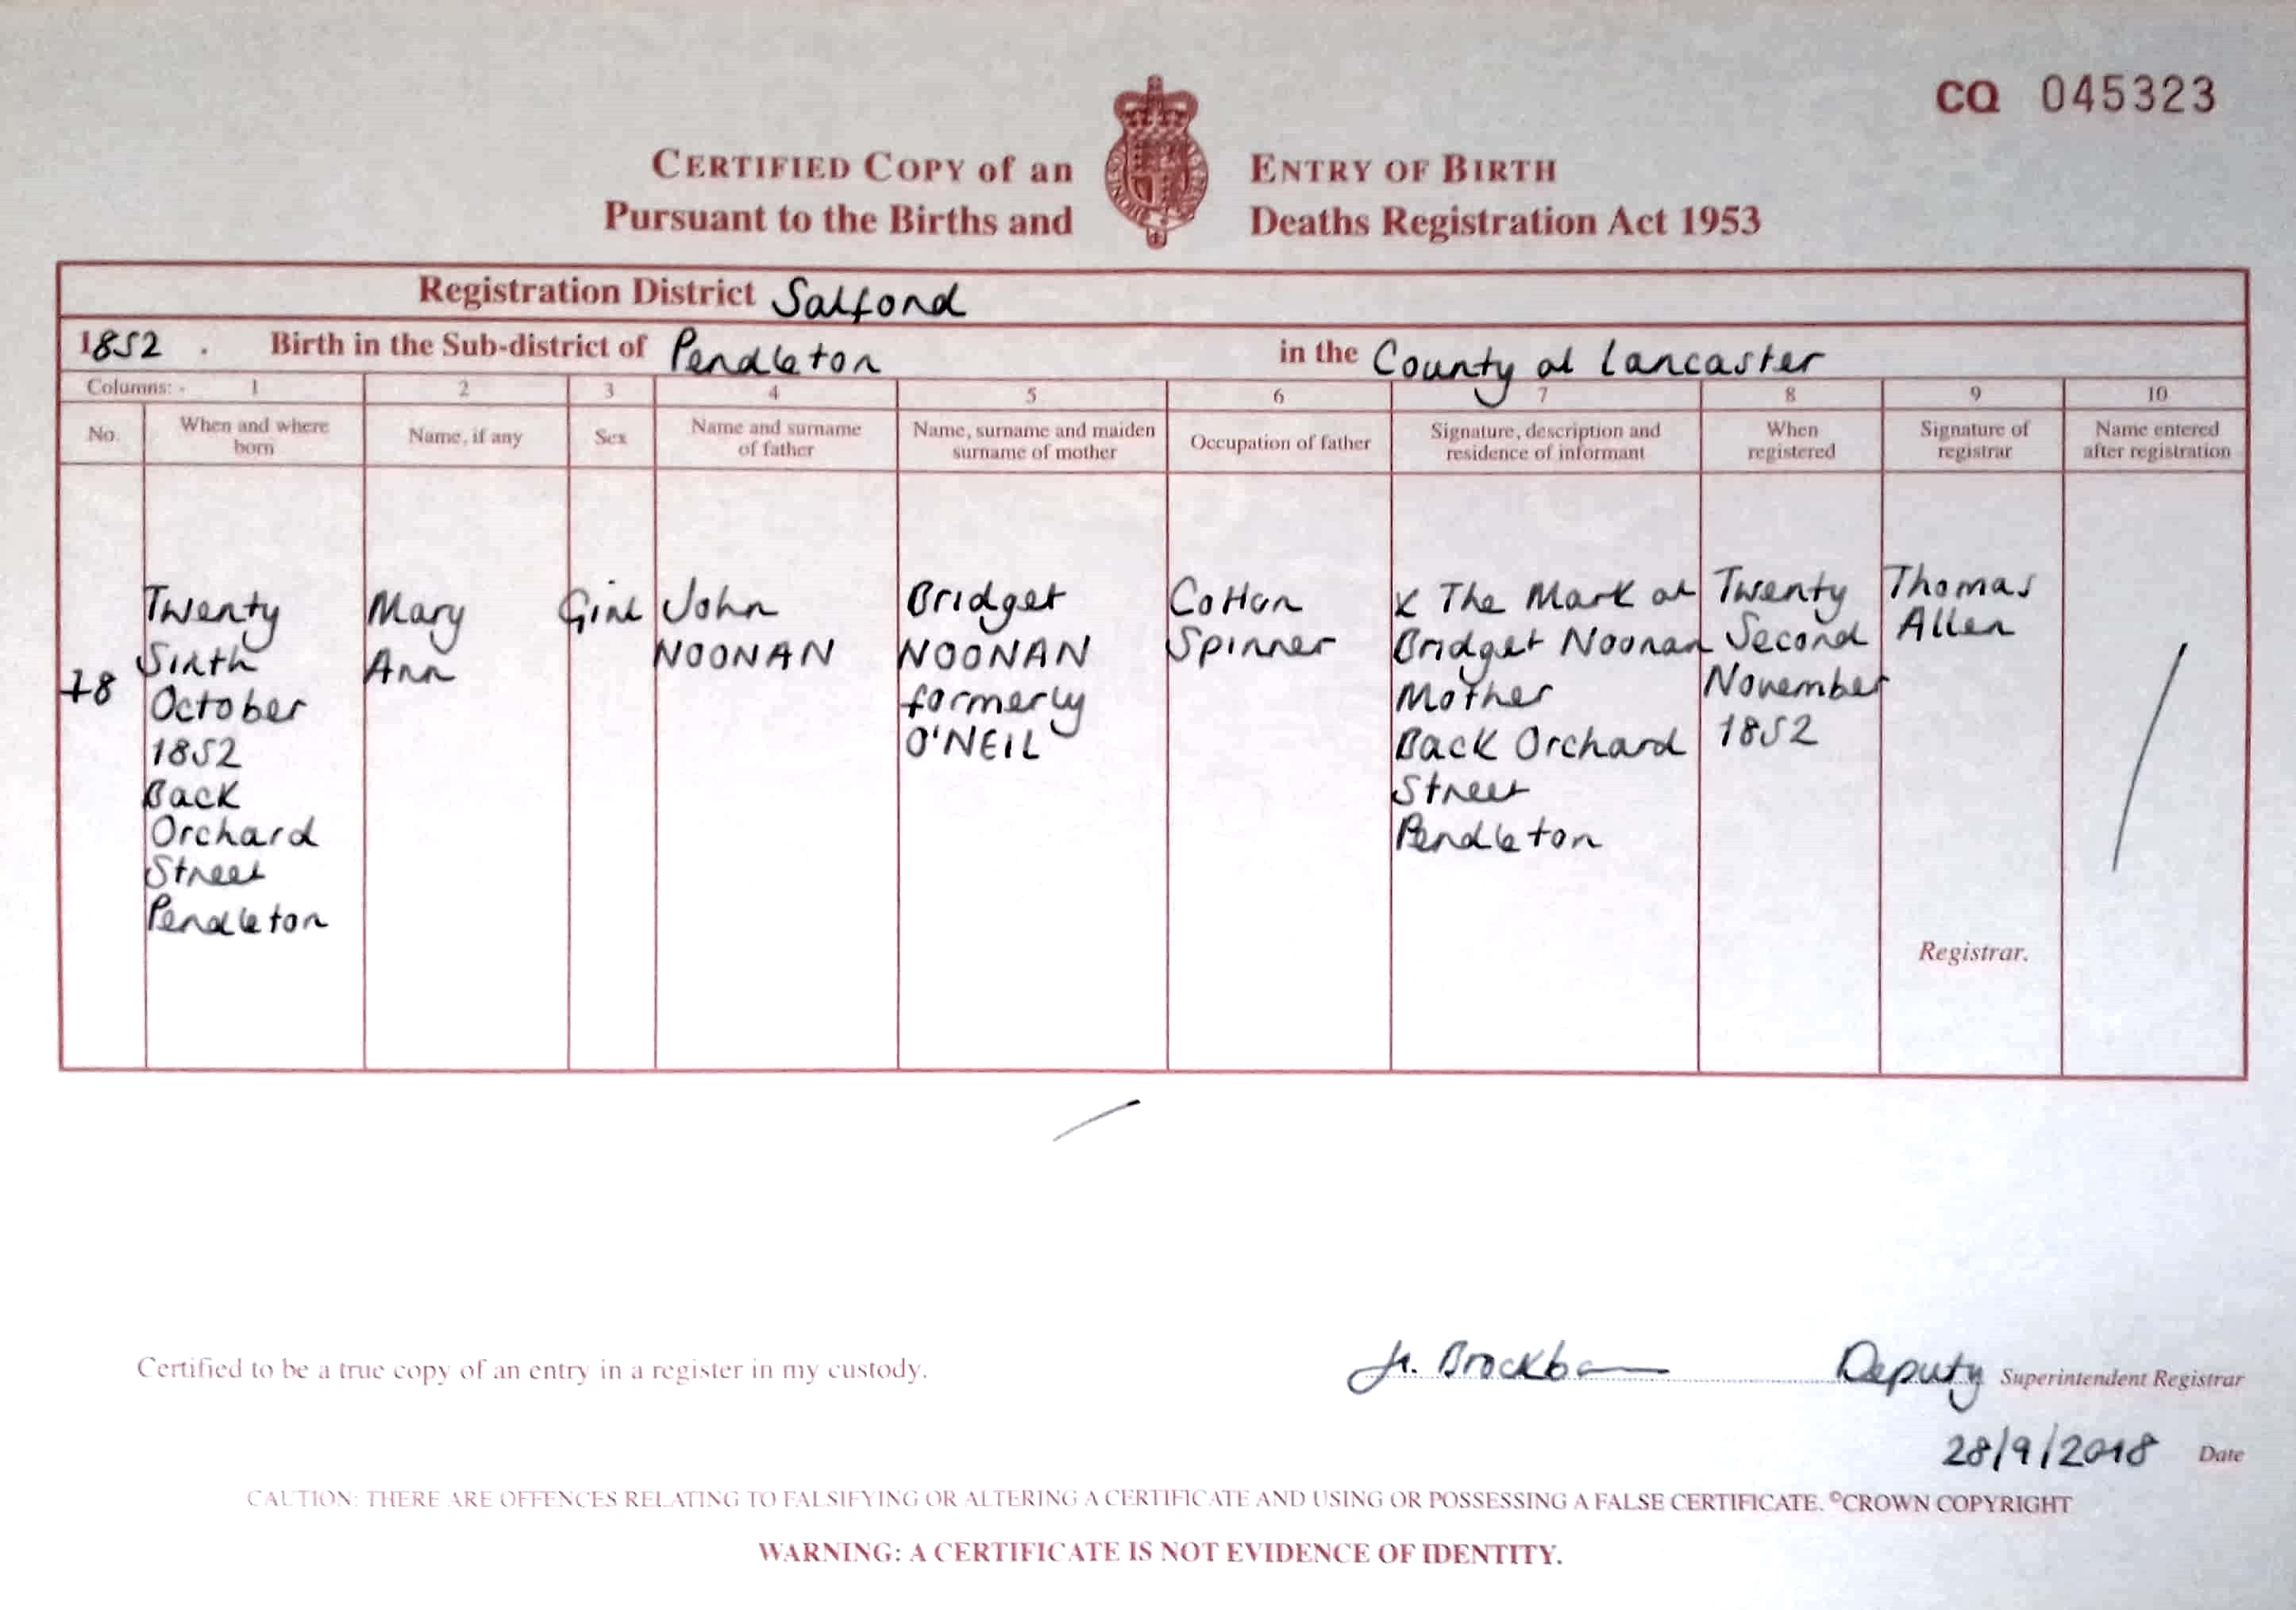 CQ 045323
CERTIFIED COPY of an ENTRY OF BIRTH
Pursuant to the Births and Deaths Registration Act 1953
Registration District Salford
1852 . Birth in the Sub-district of Pendleton in the County of Lancaster
Columns: - 1 2 3 4 5 6 7 8 9 10
No.
When and where
born
Name, if any
Sex
Name and surname
of father
Name, surname and maiden
surname of mother
Occupation of father
Signature, description and
residence of informant
When
registered
Signature of
registrar
Name entered
after registration
78
Twenty
Sixth
October
1852
Back
Orchard
Street
Pendleton
Mary
Ann
Girl
John
NOONAN
Bridget
NOONAN
formerly
O'NEIL
Cotton
Spinner
X The Mark of
Bridget Noonan
Mother
Back Orchard
Street
Pendleton
Twenty
Second
November
1852
Thomas
Allen
Registrar.
Certified to be a true copy of an entry in a register in my custody.
Deputy Superintendent Registrar
28/9/2018 Date
CAUTION: THERE ARE OFFENCES RELATING TO FALSIFYING OR ALTERING A CERTIFICATE AND USING OR POSSESSING A FALSE CERTIFICATE. ©CROWN COPYRIGHT
WARNING: A CERTIFICATE IS NOT EVIDENCE OF IDENTITY.